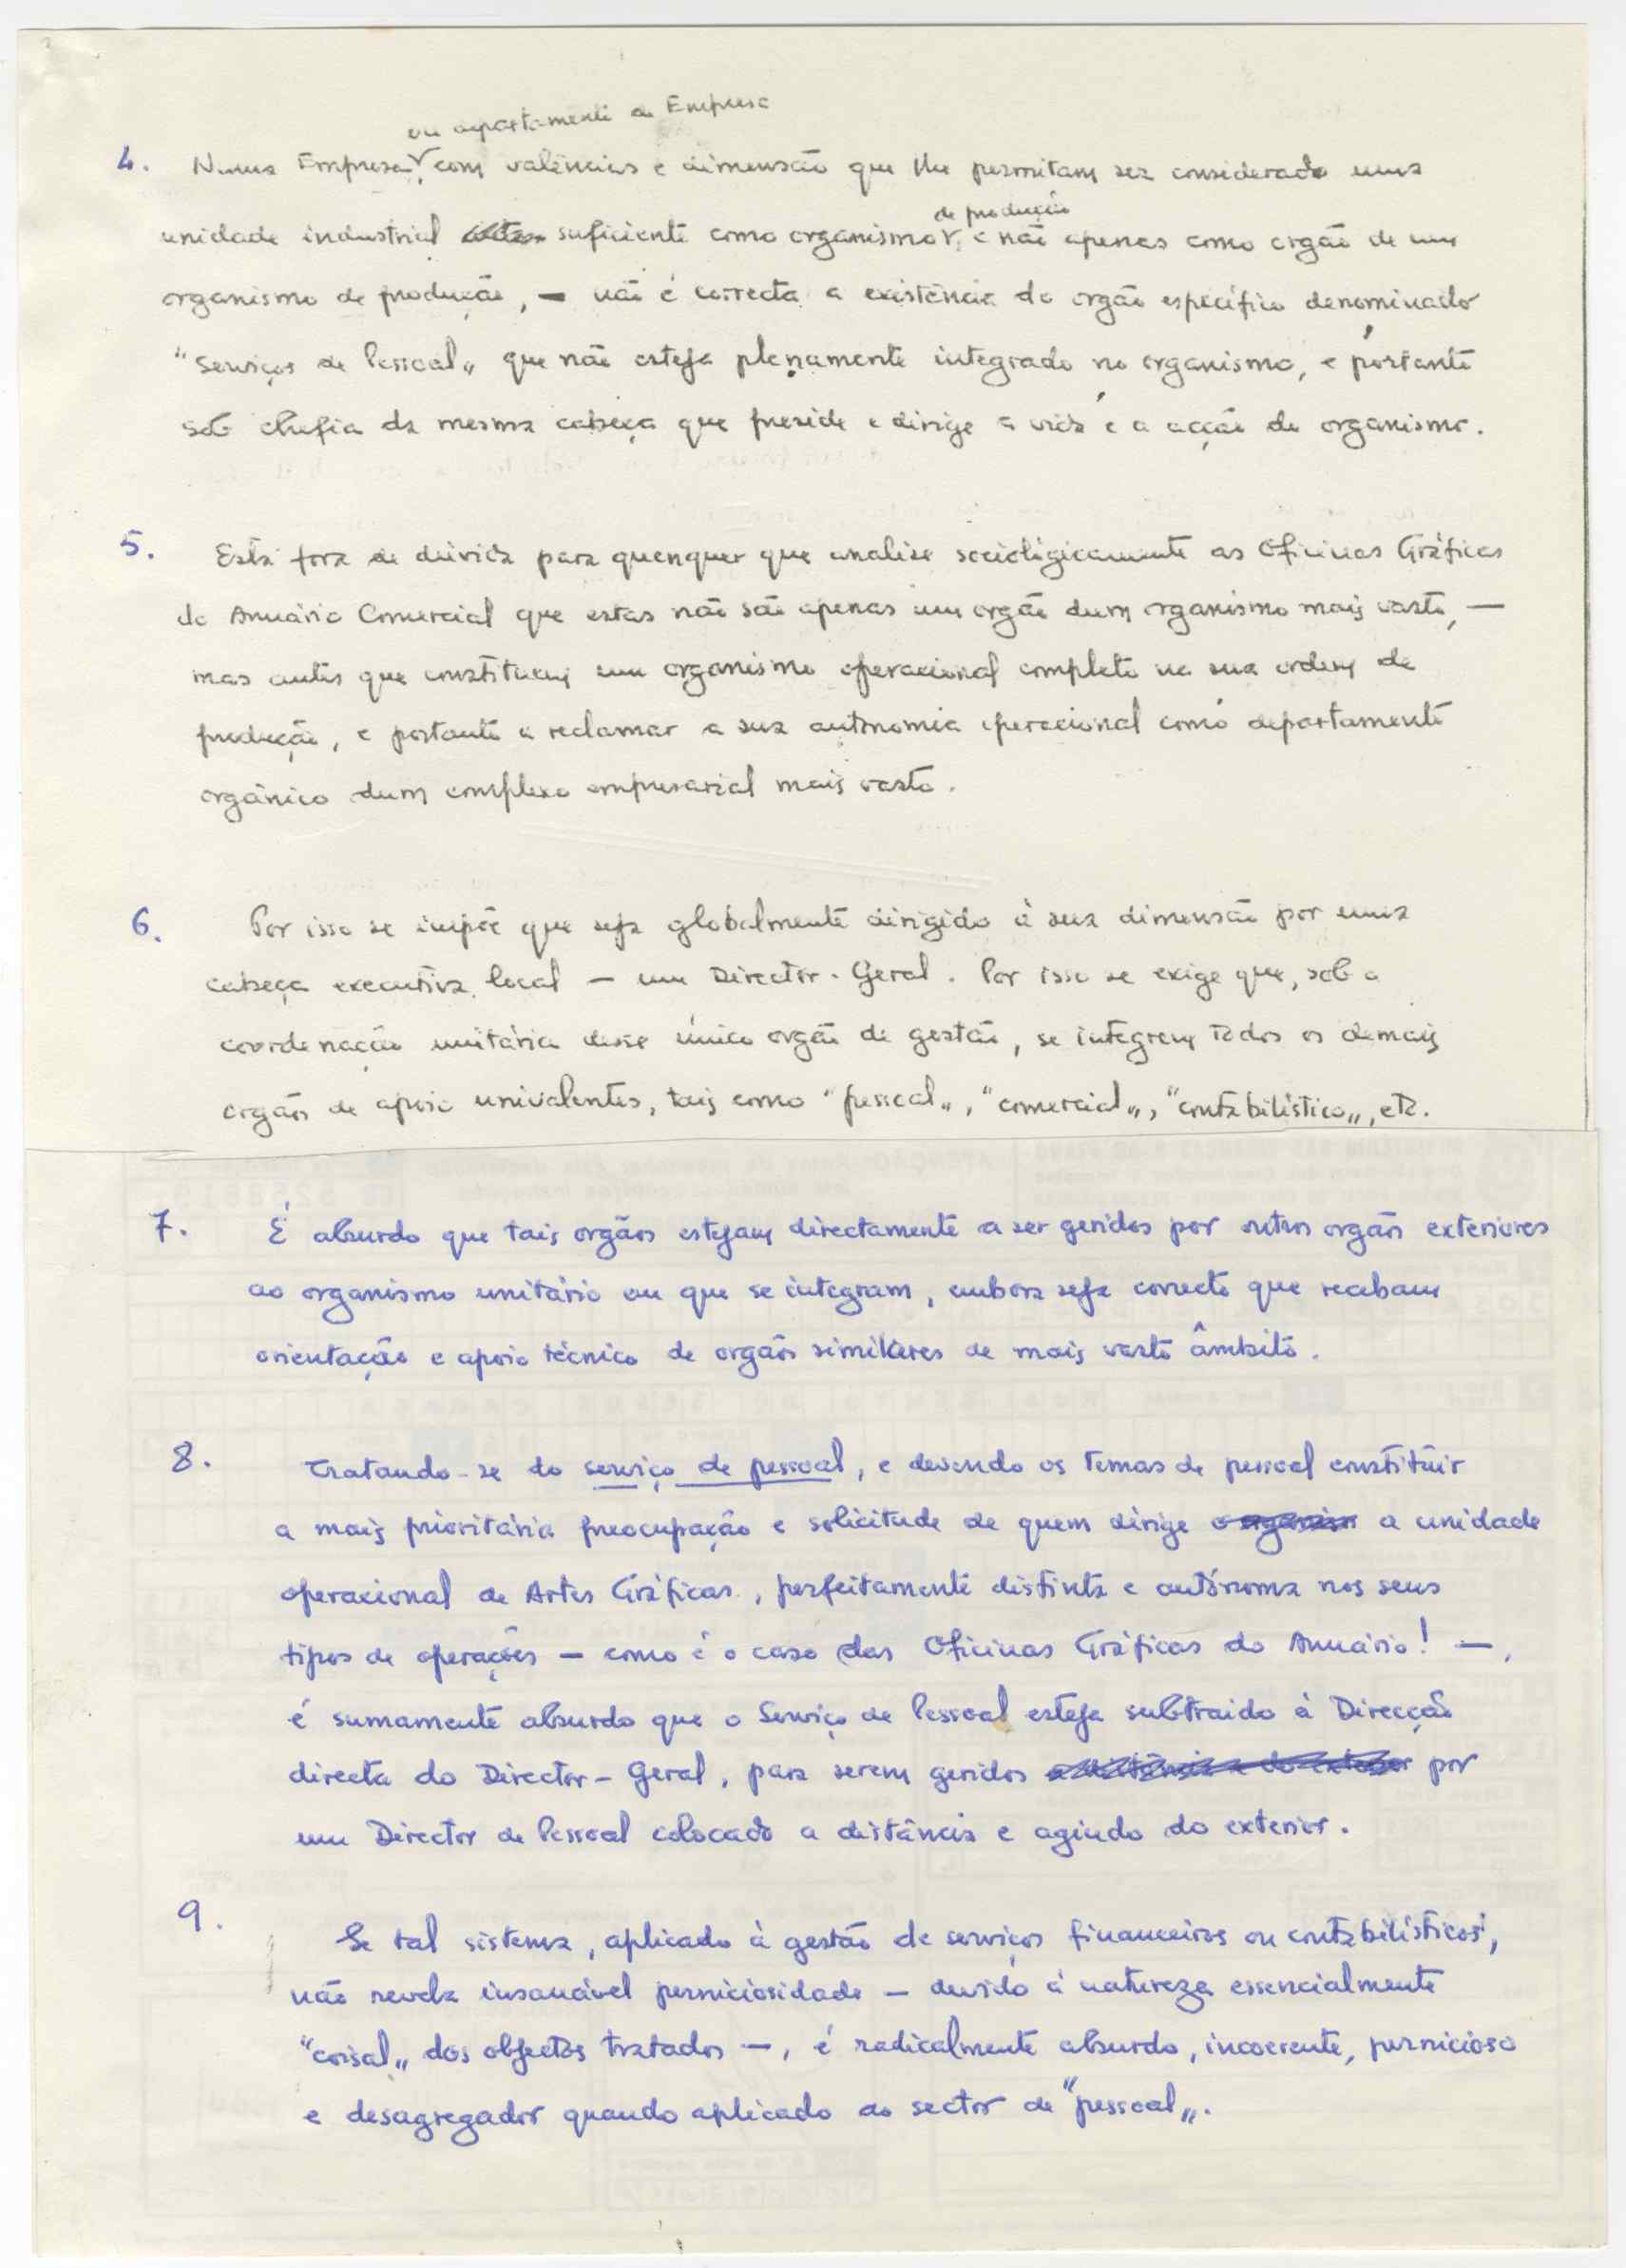 ou departamento de Empresa
4. Numa Empresa, com valências e dimensão que lhe permitam ser considerada uma
de produção
unidade industrial suficiente como organismo, e não apenas como orgão de um
organismo de produção, — não é correcta a existência do orgão específico denominado
"Serviços de Pessoal„ que não esteja plenamente integrado no organismo, e portanto
sob chefia da mesma cabeça que preside e dirige a vida e a acção do organismo.
5. Está fora de dúvida para quenquer que analise sociològicamente as Oficinas Gráficas
do Anuário Comercial que estas não são apenas um orgão dum organismo mais vasto, —
mas antes que constituem um organismo operacional completo na sua ordem de
produção, e portanto a reclamar a sua autonomia operacional como departamento
orgânico dum complexo empresarial mais vasto.
6. Por isso se impõe que seja globalmente dirigido à sua dimensão por uma
cabeça executiva local — um Director-Geral. Por isso se exige que, sob a
coordenação unitária desse único orgão de gestão, se integrem todos os demais
orgãos de apoio univalentes, tais como "pessoal„, "comercial„, "contabilístico„, etc.
7. É absurdo que tais orgãos estejam directamente a ser geridos por outros orgãos exteriores
ao organismo unitário em que se integram, embora seja correcto que recebam
orientação e apoio técnico de orgãos similares de mais vasto âmbito.
8. Tratando-se do serviço de pessoal, e devendo os temas de pessoal constituir
a mais prioritária preocupação e solicitude de quem dirige a unidade
operacional de Artes Gráficas, perfeitamente distinta e autónoma nos seus
tipos de operações — como é o caso das Oficinas Gráficas do Anuário! —,
é sumamente absurdo que o Serviço de Pessoal esteja subtraido à Direcção
directa do Director-Geral, para serem geridos por
um Director de Pessoal colocado a distância e agindo do exterior.
9. Se tal sistema, aplicado à gestão de serviços financeiros ou contabilísticos,
não revela insanável perniciosidade — devido à natureza essencialmente
"coisal„ dos objectos tratados —, é radicalmente absurdo, incoerente, pernicioso
e desagregador quando aplicado ao sector de "pessoal„.